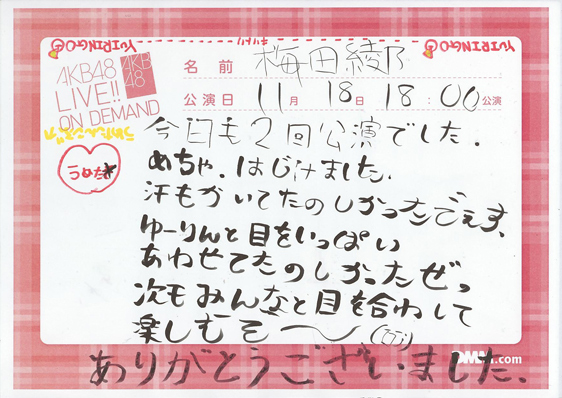 YUIRINGO
YUIRINGO
AKB48
LIVE!!
ON DEMAND
AKB
48
名前 梅田綾乃
公演日 11月18日 18:00公演
うめ
今日も2回公演でした。
めちゃ、はじけました。
汗もかいてたのしかったでぇす、
ゆーりんと目をいっぱい
あわせてたのしかったぜっ
次もみんなと目を合わして
楽しむぞ〜
ありがとうございました.
DMM.com